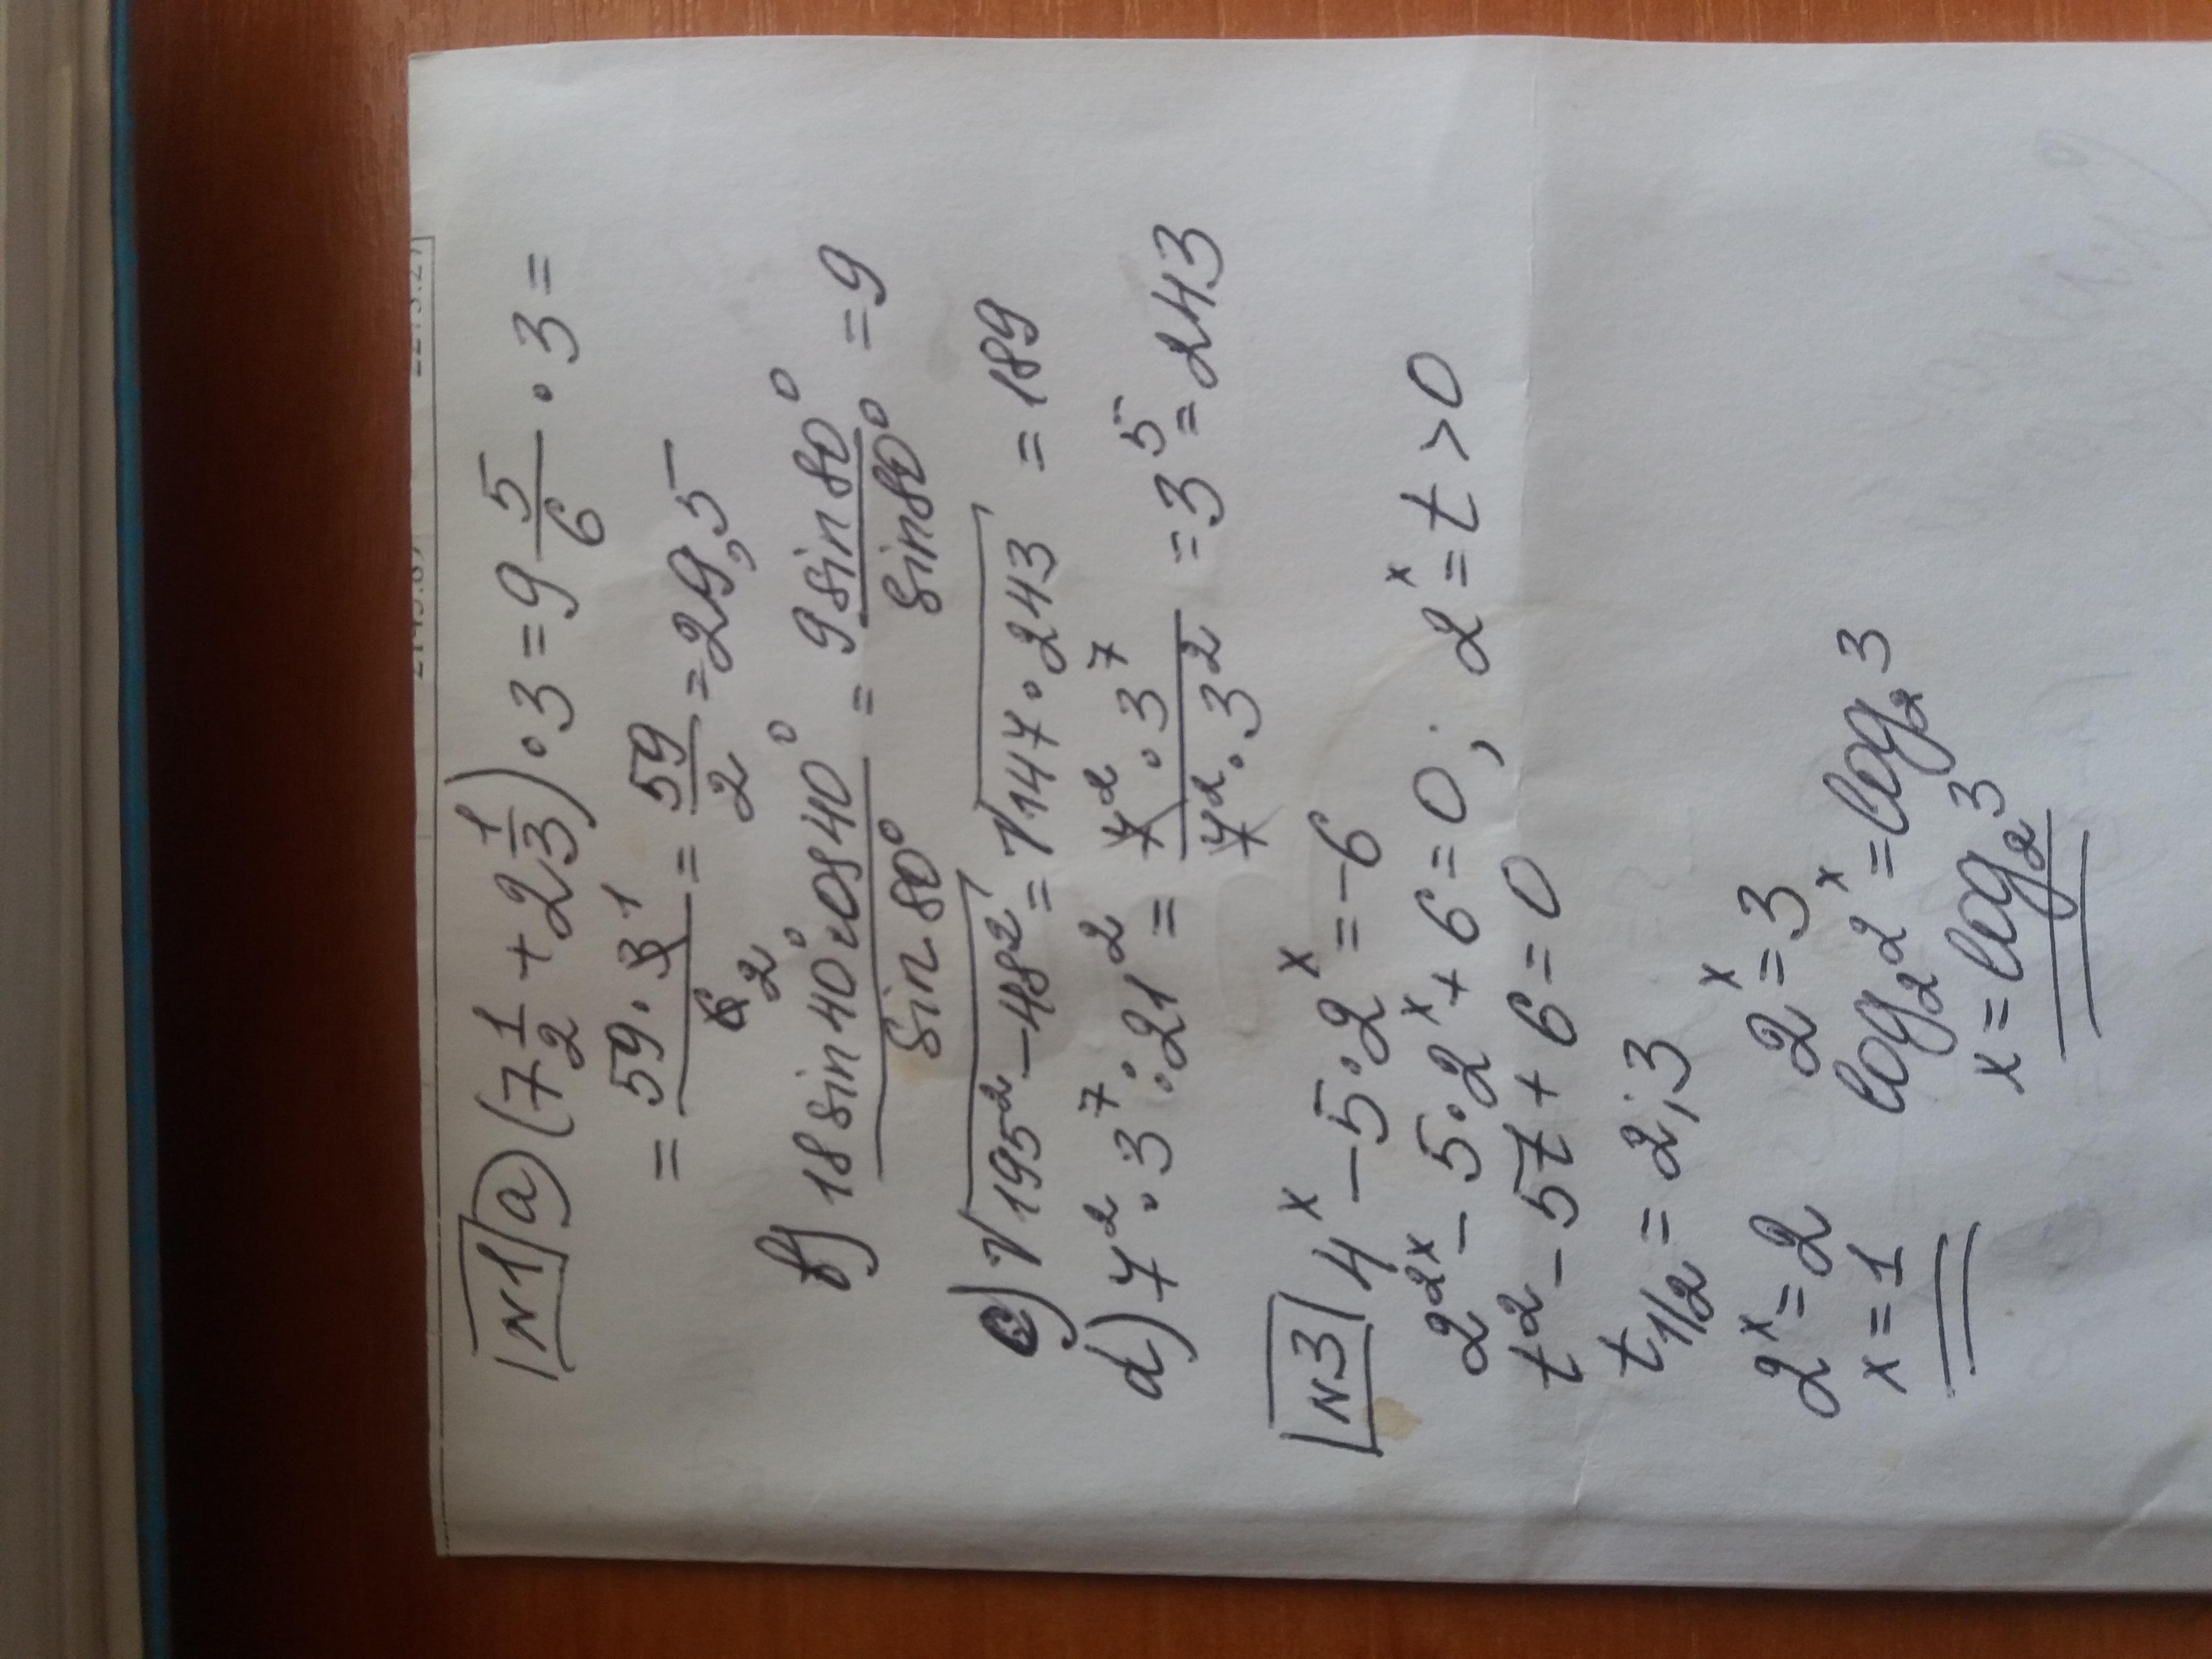 N1 a) (7 1/2 + 2 1/3) · 3 = 9 5/6 · 3 =
= 59 · 3 1 / 6 2 = 59/2 = 29,5
b) 18 sin 40° cos 40° / sin 80° = 9 sin 80° / sin 80° = 9
c) √(195² - 48²) = √(147 · 243) = 189
d) 7² · 3⁷ : 21² = 7² · 3⁷ / 7² · 3² = 3⁵ = 243
N3 4ˣ - 5 · 2ˣ = -6
2²ˣ - 5 · 2ˣ + 6 = 0 ; 2ˣ = t > 0
t² - 5t + 6 = 0
t 1/2 = 2 ; 3
2ˣ = 2 2ˣ = 3
x = 1 log₂ 2ˣ = log₂ 3
x = log₂ 3